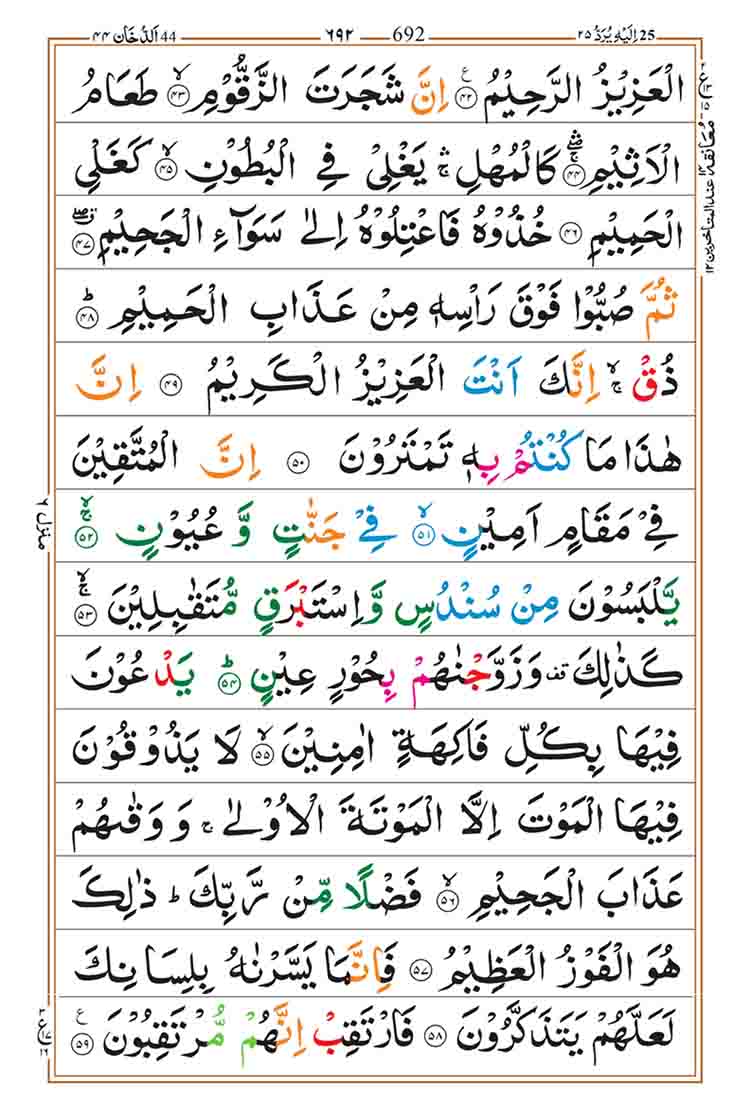 25 اِلَيْهِ يُرَدُّ ٢٥ 692 ٦٩٢ 44 اَلدُّخَان ٤٤
الْعَزِيْزُ الرَّحِيْمُ ۝٤٢ ع اِنَّ شَجَرَتَ الزَّقُّوْمِ ۝٤٣ۙ طَعَامُ
الْاَثِيْمِ ۝٤٤ۛۚ كَالْمُهْلِ ۛۚ يَغْلِىْ فِى الْبُطُوْنِ ۝٤٥ۙ كَغَلْىِ
الْحَمِيْمِ ۝٤٦ خُذُوْهُ فَاعْتِلُوْهُ اِلٰى سَوَآءِ الْجَحِيْمِ ۝٤٧ۖ
ثُمَّ صُبُّوْا فَوْقَ رَاْسِهٖ مِنْ عَذَابِ الْحَمِيْمِ ۝٤٨ؕ
ذُقْ ۙۚ اِنَّكَ اَنْتَ الْعَزِيْزُ الْكَرِيْمُ ۝٤٩ اِنَّ
هٰذَا مَا كُنْتُمْ بِهٖ تَمْتَرُوْنَ ۝٥٠ اِنَّ الْمُتَّقِيْنَ
فِىْ مَقَامٍ اَمِيْنٍ ۝٥١ۙ فِىْ جَنّٰتٍ وَّ عُيُوْنٍ ۝٥٢ۙۚ
يَّلْبَسُوْنَ مِنْ سُنْدُسٍ وَّاِسْتَبْرَقٍ مُّتَقٰبِلِيْنَ ۝٥٣ۙۚ
كَذٰلِكَ قف وَزَوَّجْنٰهُمْ بِحُوْرٍ عِيْنٍ ۝٥٤ؕ يَدْعُوْنَ
فِيْهَا بِكُلِّ فَاكِهَةٍ اٰمِنِيْنَ ۝٥٥ۙ لَا يَذُوْقُوْنَ
فِيْهَا الْمَوْتَ اِلَّا الْمَوْتَةَ الْاُوْلٰى ۚ وَ وَقٰىهُمْ
عَذَابَ الْجَحِيْمِ ۝٥٦ۙ فَضْلًا مِّنْ رَّبِّكَ ؕ ذٰلِكَ
هُوَ الْفَوْزُ الْعَظِيْمُ ۝٥٧ فَاِنَّمَا يَسَّرْنٰهُ بِلِسَانِكَ
لَعَلَّهُمْ يَتَذَكَّرُوْنَ ۝٥٨ فَارْتَقِبْ اِنَّهُمْ مُّرْتَقِبُوْنَ ۝٥٩ ع
معانقة ١٢ عند المتاخرين ١٢
منزل ٦